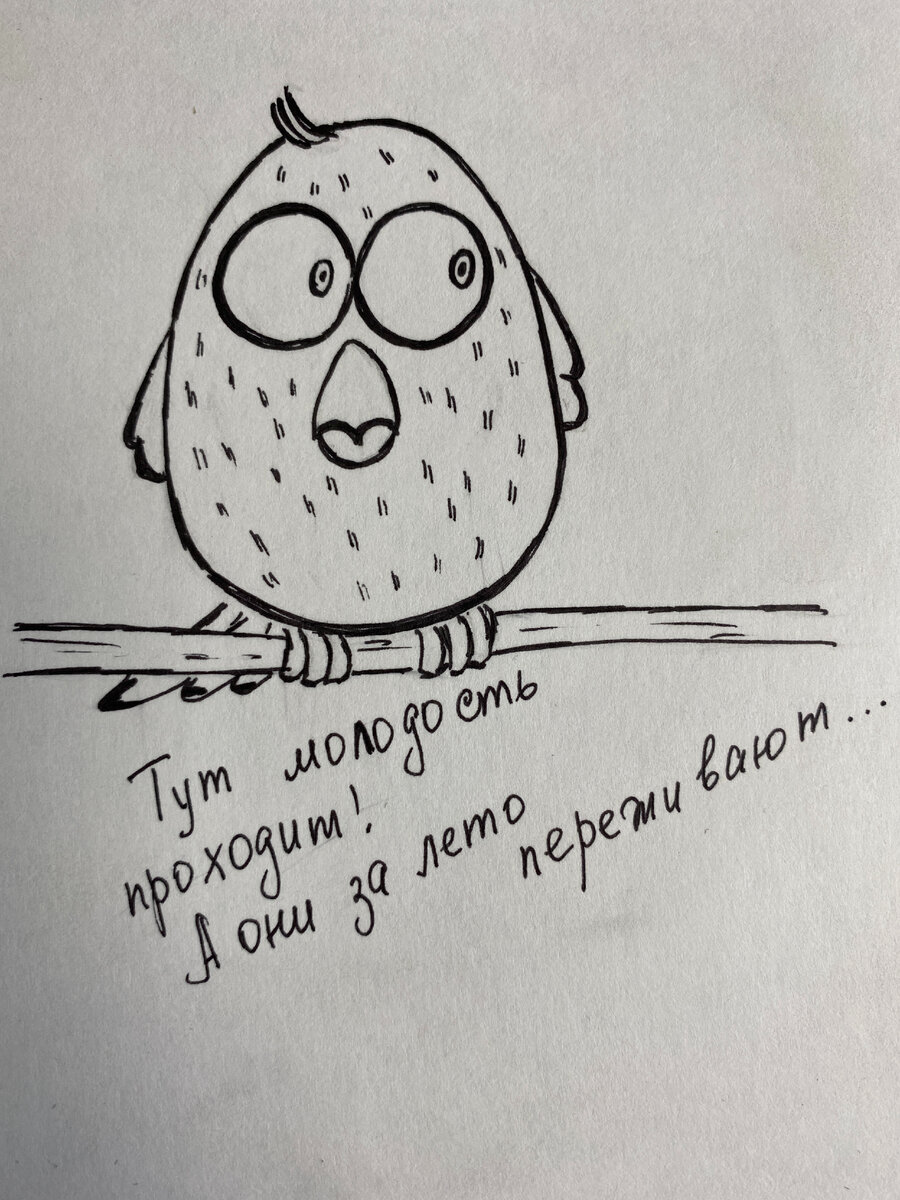 Тут молодость
проходит!
А они за лето переживают...